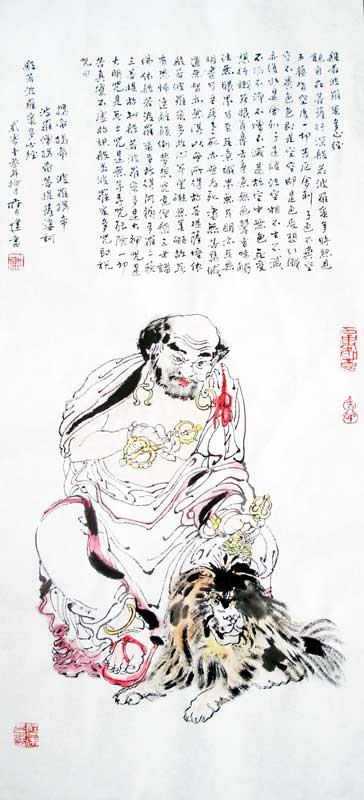 般若波羅蜜多心經
觀自在菩薩行深般若波羅蜜多時照見
五蘊皆空度一切苦厄舍利子色不異空
空不異色色即是空空即是色受想行識
亦復如是舍利子是諸法空相不生不滅
不垢不淨不增不減是故空中無色無受
想行識無眼耳鼻舌身意無色聲香味觸
法無眼界乃至無意識界無無明亦無無
明盡乃至無老死亦無老死盡無苦集滅
道無智亦無得以無所得故菩提薩埵依
般若波羅蜜多故心無罣礙無罣礙故無
有恐怖遠離顛倒夢想究竟涅槃三世諸
佛依般若波羅蜜多故得阿耨多羅三藐
三菩提故知般若波羅蜜多是大神咒是
大明咒是無上咒是無等等咒能除一切
苦真實不虛故說般若波羅蜜多咒即說
咒曰
揭帝揭帝 波羅揭帝
波羅僧揭帝菩提薩婆訶
般若波羅蜜多心經